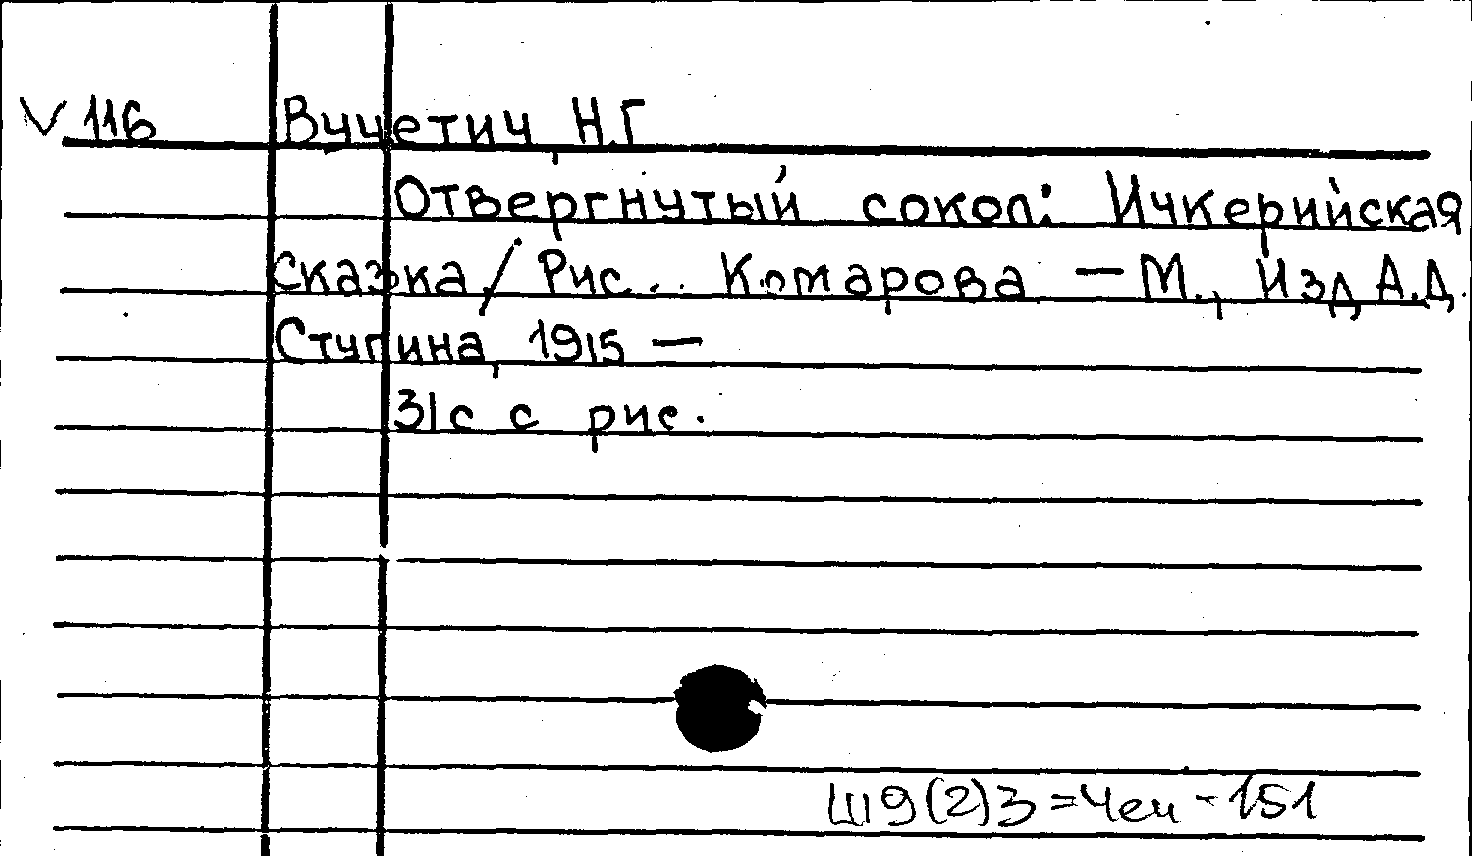 V 116 Вучетич, Н.Г
Отвергнутый сокол: Ичкерийская
сказка / Рис... Комарова — М., Изд А.Д.
Ступина, 1915 —
31с с рис.
Ш9(2)3=Чеч-151